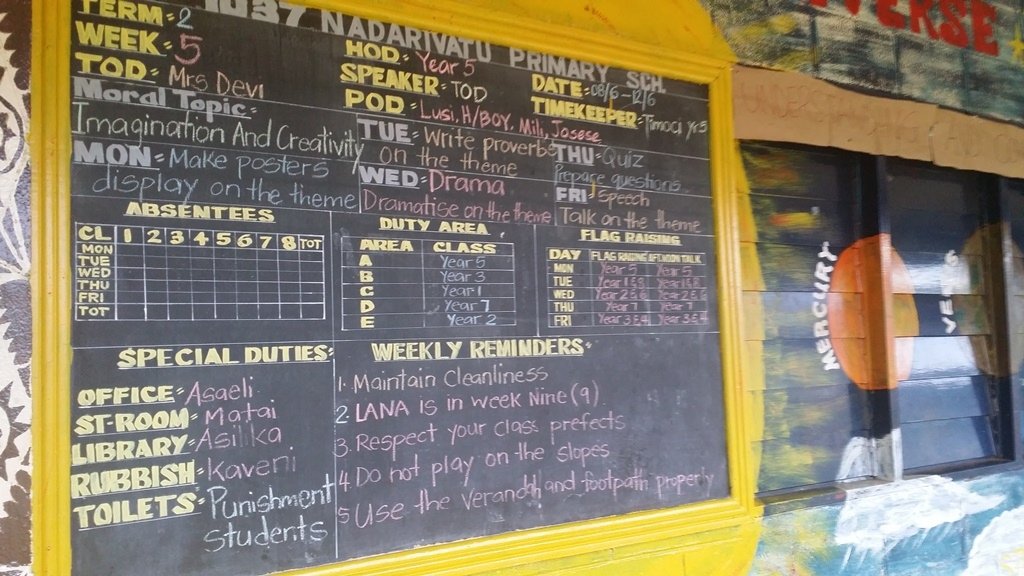 1037 NADARIVATU PRIMARY SCH.
TERM: 2
WEEK: 5
TOD: Mrs Devi
HOD: Year 5
SPEAKER: TOD
POD: Lusi, H/BOY, Mili, Josese
DATE: 08/6-12/6
TIMEKEEPER: Timoci yr5
Moral Topic:
Imagination And Creativity
MON: Make posters
display on the theme
TUE: Write proverbs
on the theme
WED: Drama
Dramatise on the theme
THU: Quiz
Prepare questions
FRI: Speech
Talk on the theme
ABSENTEES
CL 1 2 3 4 5 6 7 8 TOT
MON
TUE
WED
THU
FRI
TOT
DUTY AREA
AREA CLASS
A Year 5
B Year 3
C Year 1
D Year 7
E Year 2
FLAG RAISING
DAY FLAG RAISING AFTNOON TALK
MON Year 5 Year 5
TUE Year 1&8 Year 1&8
WED Year 2&6 Year 2&6
THU Year 7 Year 7
FRI Year 3&4 Year 3&4
SPECIAL DUTIES:
OFFICE: Asaeli
ST-ROOM: Matai
LIBRARY: Asilika
RUBBISH: Kaveni
TOILETS: Punishment
students
WEEKLY REMINDERS:
1. Maintain Cleanliness
2. LANA is in week Nine (9)
3. Respect your class prefects
4. Do not play on the slopes
5. Use the verandah and footpath properly
VERSE
MERCURY